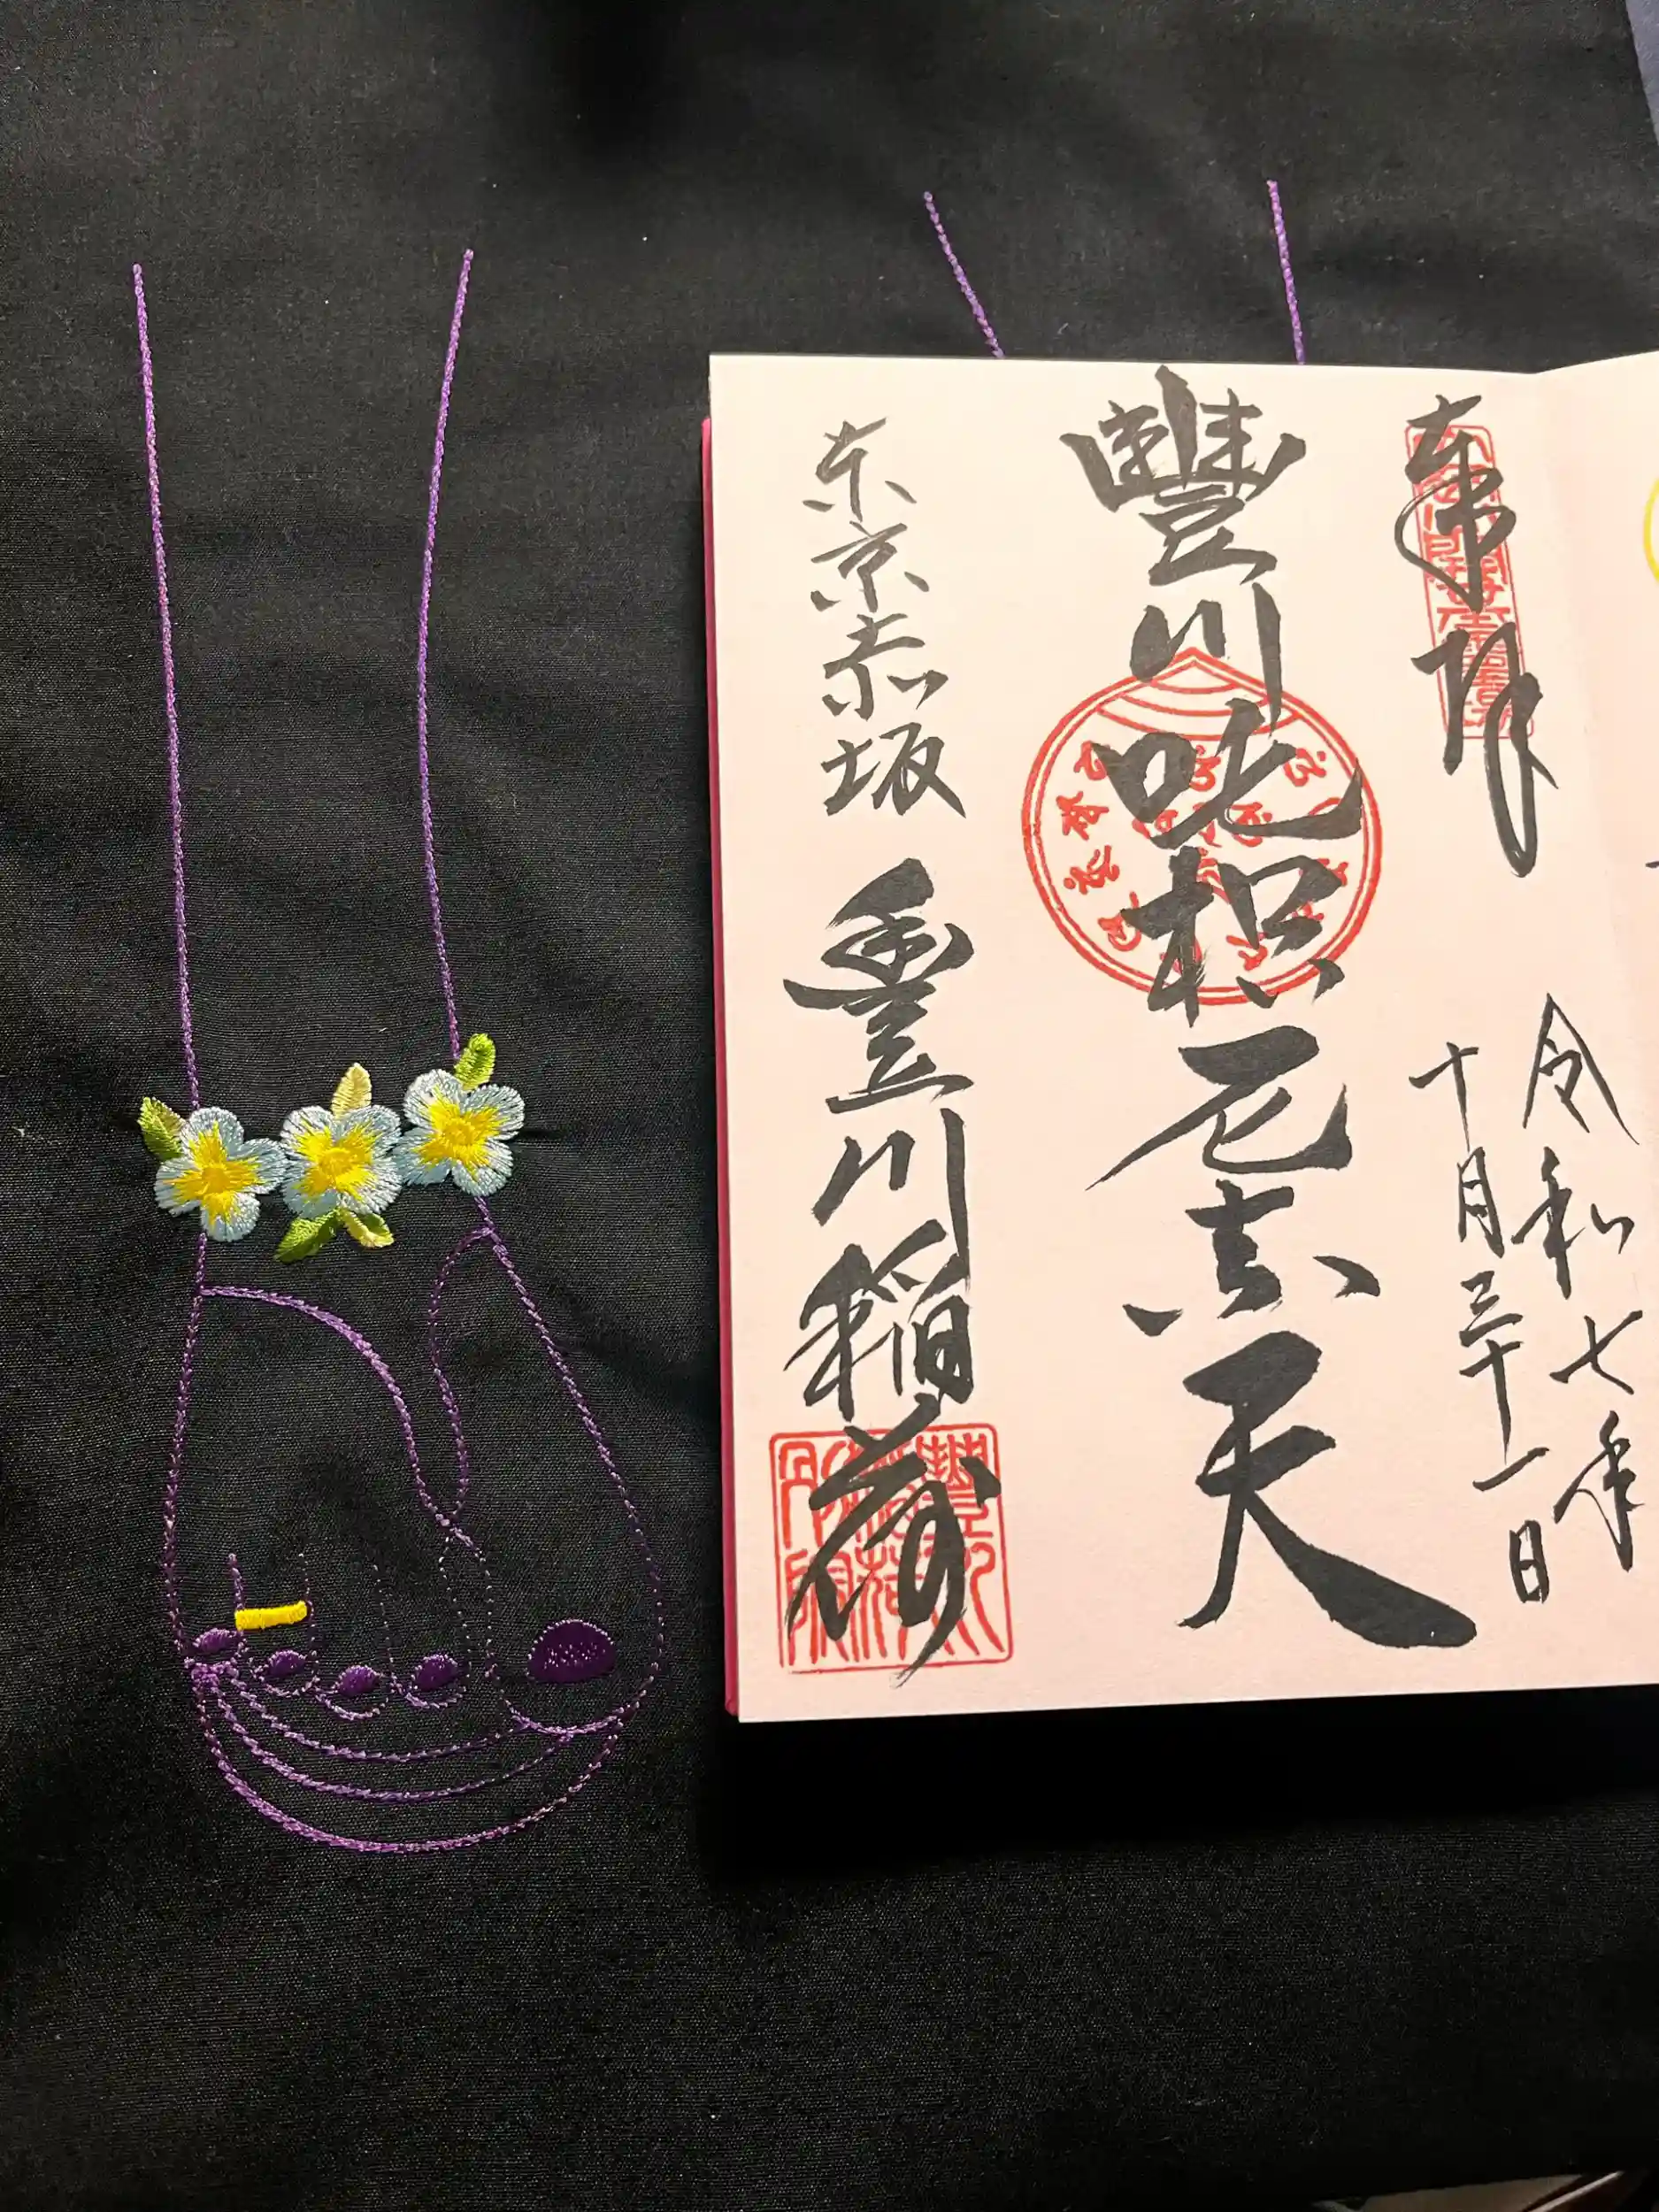 奉拝
令和七年
十月三十一日
豐川吒枳尼真天
东京赤坂
豊川稲荷